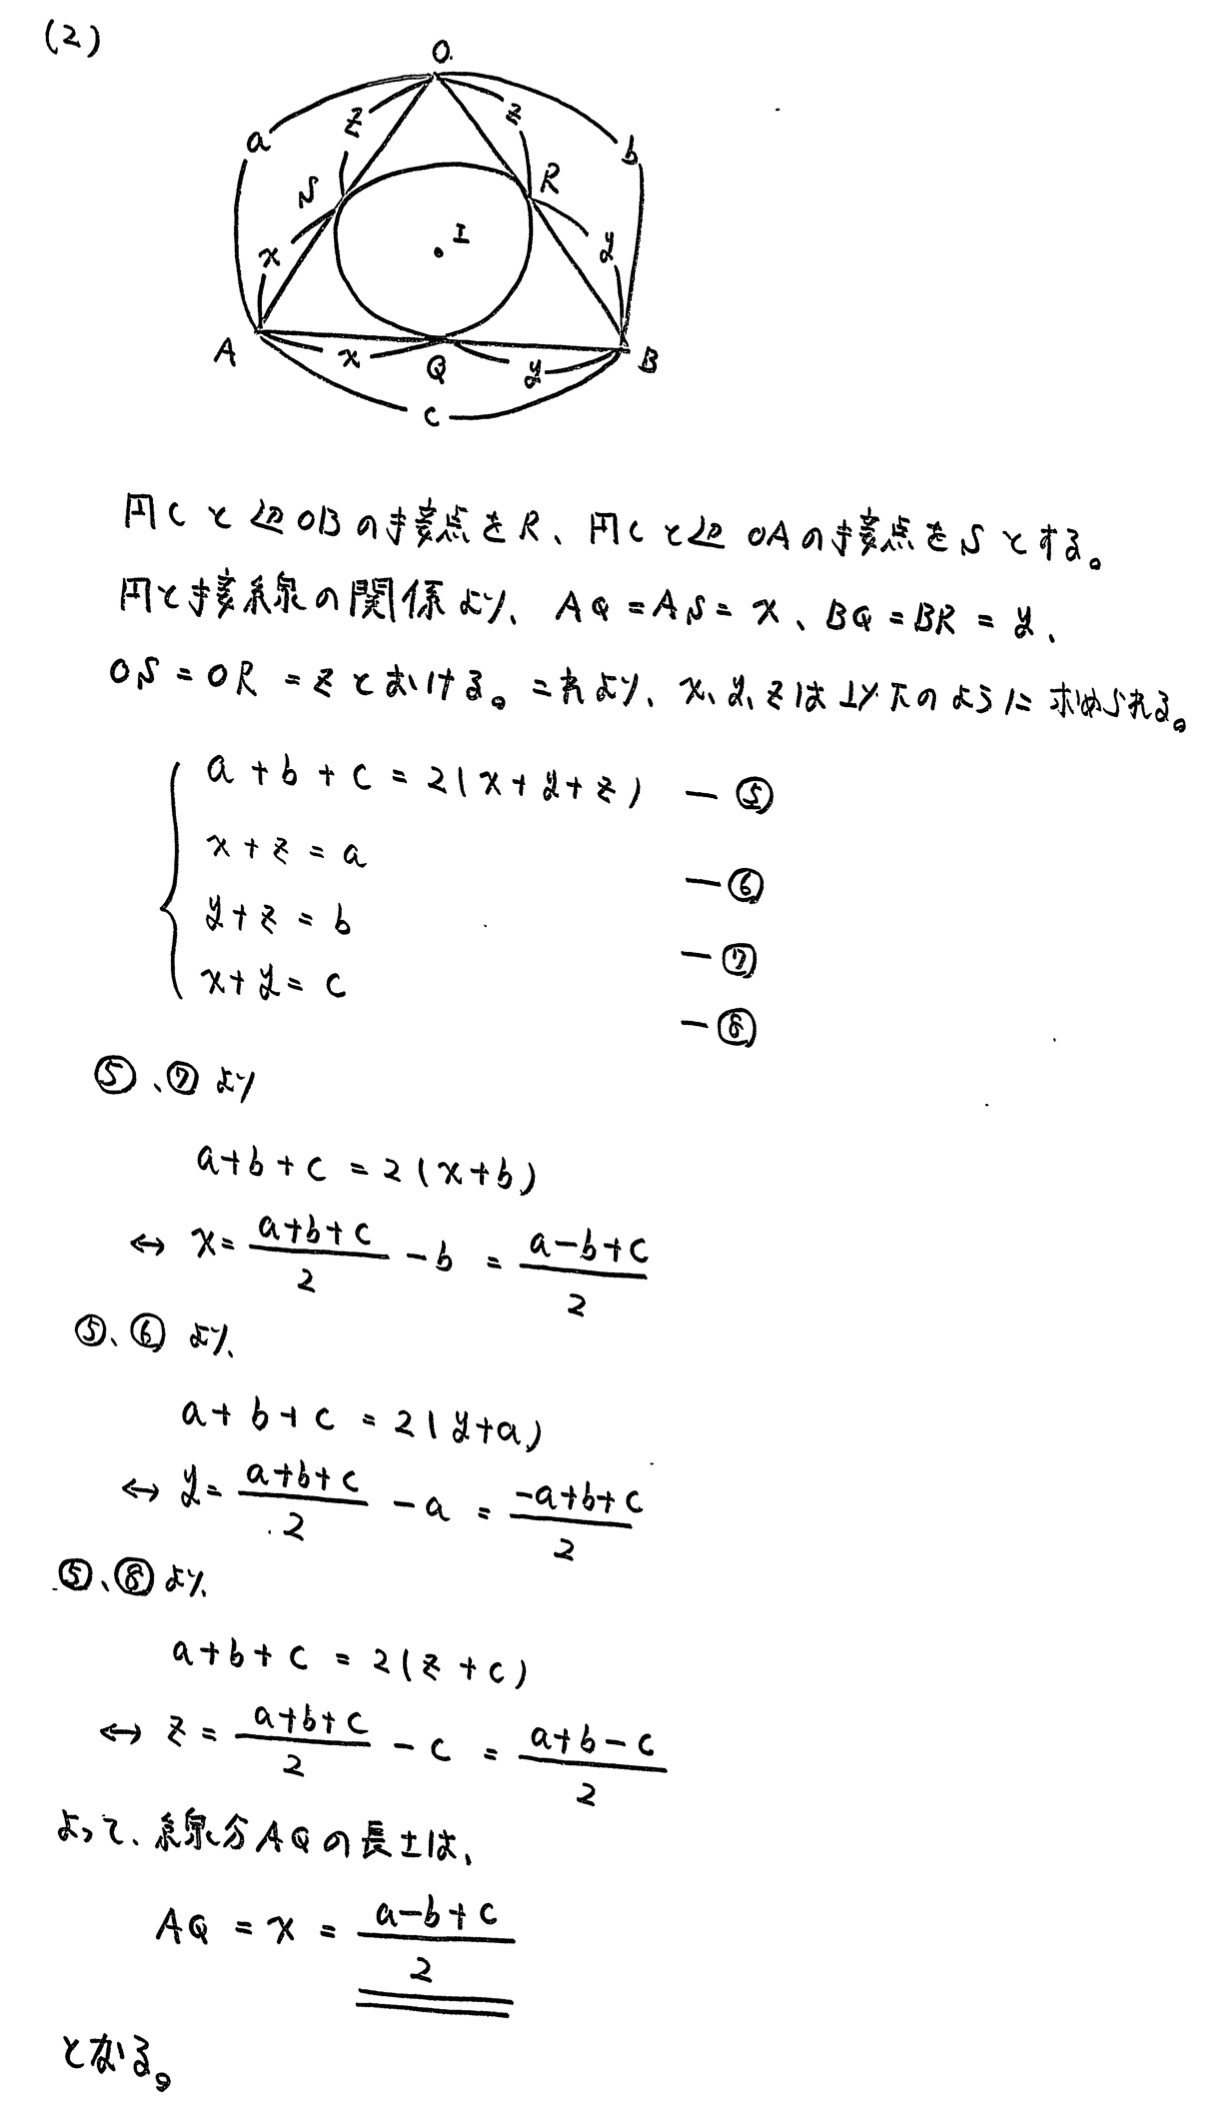 (2)
O
a z z b
S R
x I y
A x Q y B
c
円Cと辺OBの接点をR、円Cと辺OAの接点をSとする。
円と接線の関係より、AQ=AS=x、BQ=BR=y、
OS=OR=zとおける。これより、x、y、zは以下のように求められる。
a+b+c=2(x+y+z) ー⑤
x+z=a ー⑥
y+z=b ー⑦
x+y=c ー⑧
⑤、⑦より
a+b+c=2(x+b)
⇔ x=\frac{a+b+c}{2}-b=\frac{a-b+c}{2}
⑤、⑥より、
a+b+c=2(y+a)
⇔ y=\frac{a+b+c}{2}-a=\frac{-a+b+c}{2}
⑤、⑧より、
a+b+c=2(z+c)
⇔ z=\frac{a+b+c}{2}-c=\frac{a+b-c}{2}
よって、線分AQの長さは、
AQ=x=\frac{a-b+c}{2}
となる。